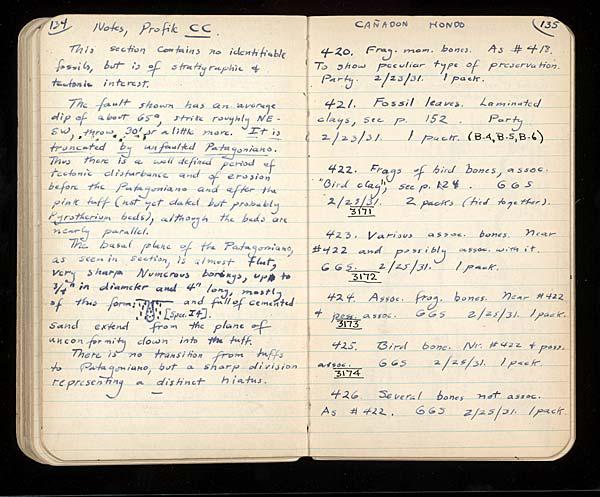 134
Notes, Profile CC.
This section contains no identifiable
fossils, but is of stratigraphic &
tectonic interest.
The fault shown has an average
dip of about 65°, strike roughly NE-
SW, throw 30' or a little more. It is
truncated by unfaulted Patagoniano.
Thus there is a well defined period of
tectonic disturbance and of erosion
before the Patagoniano and after the
pink tuff (not yet dated but probably
Pyrotherium beds), although the beds are
nearly parallel.
The basal plane of the Patagoniano,
as seen in section, is almost flat,
very sharp. Numerous borings, up to
3/4" in diameter and 4" long, mostly
of this form: and full of cemented
[Spec. I4].
sand extend from the plane of
unconformity down into the tuff.
There is no transition from tuffs
to Patagoniano, but a sharp division
representing a distinct hiatus.
CAÑADON HONDO
135
420. Frag. mam. bones. As #418.
To show peculiar type of preservation.
Party. 2/23/31. 1 pack.
421. Fossil leaves. Laminated
clays, see p. 152. Party
2/23/31. 1 pack. (B-4, B-5, B-6)
422. Frags of bird bones, assoc.
"Bird clay", see p. GGS
2/25/31. 2 packs (tied together).
3171
423. Various assoc. bones. Near
#422 and possibly assoc. with it.
GGS. 2/25/31. 1 pack.
3172
424. Assoc. frag. bones. Near #422
& poss. assoc. GGS 2/25/31. 1 pack.
3173
425. Bird bone. Nr. #422 & poss.
assoc. GGS 2/25/31. 1 pack
3174
426. Several bones not assoc.
As #422. GGS 2/25/31. 1 pack.